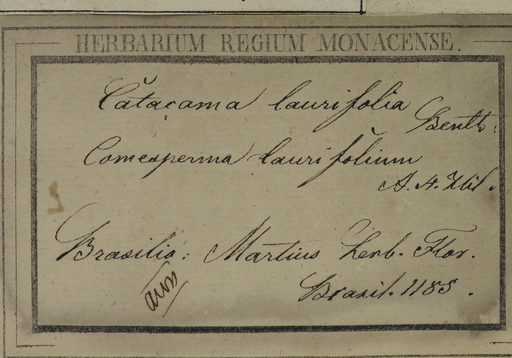 HERBARIUM REGIUM MONACENSE.
Cătacama laurifolia
Benth.
Comesperma laurifolium
A. St. Hil.
Brasilia: Martius herb. Flor.
Brasil. 1185.